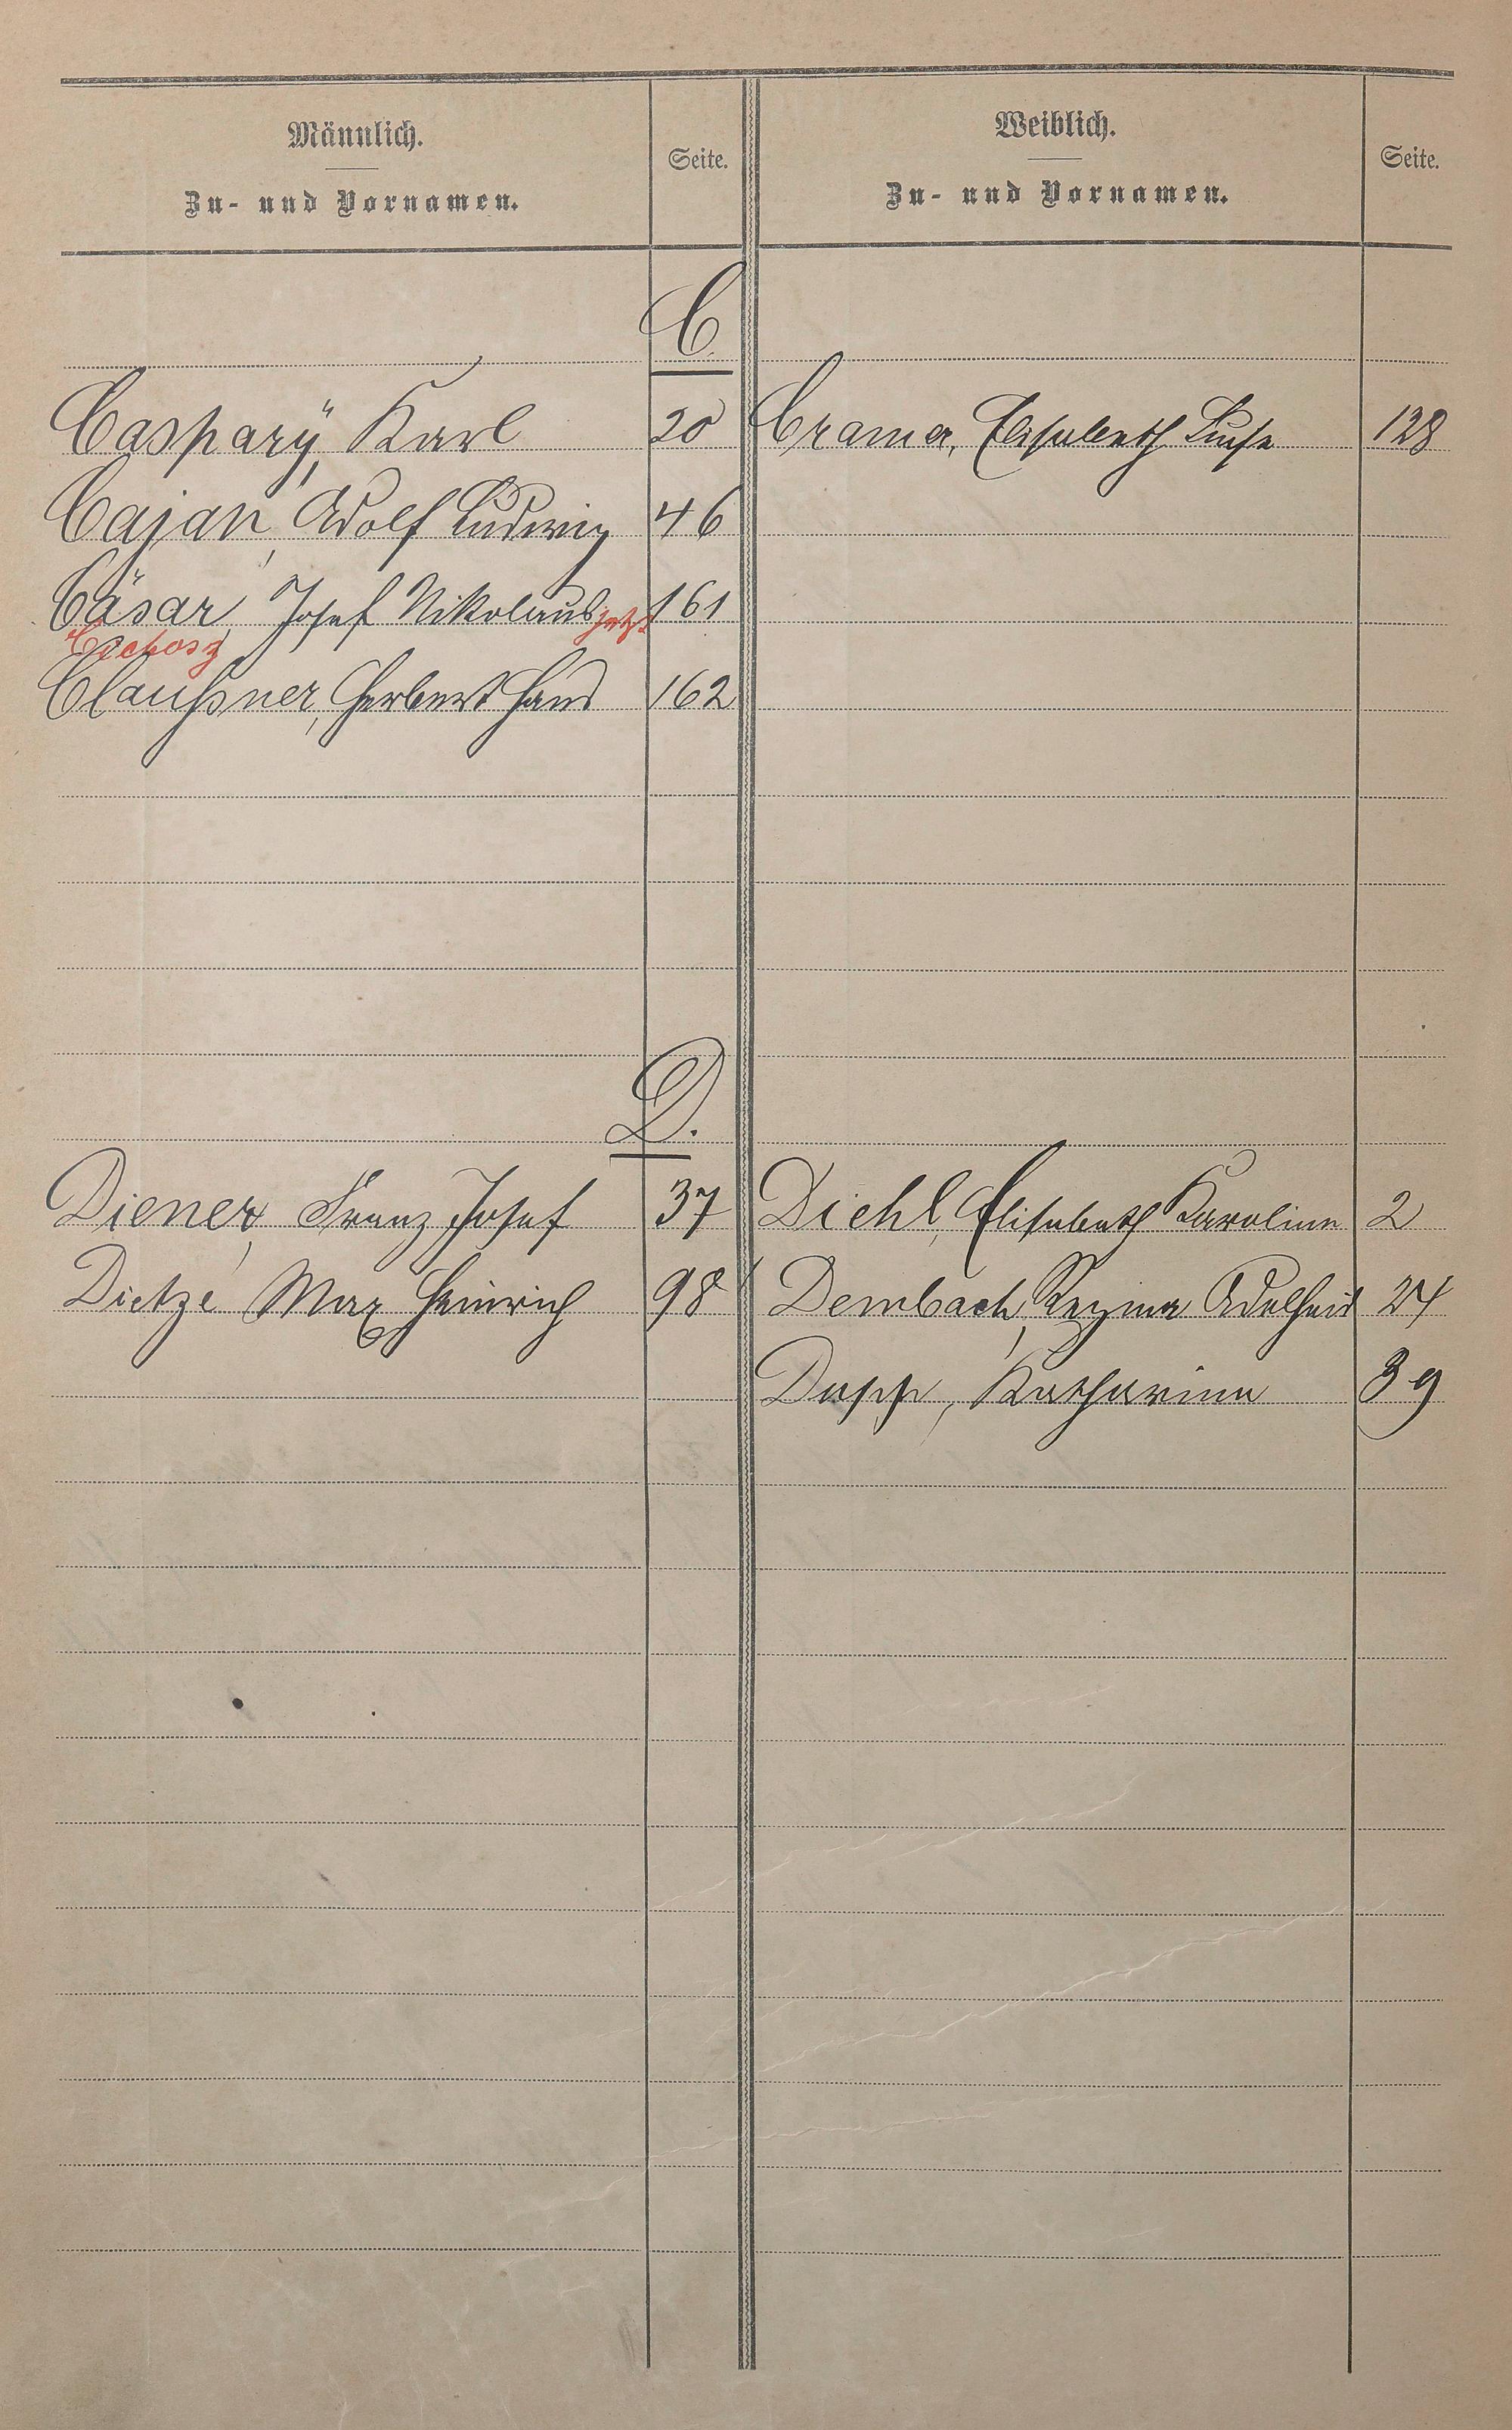 Männlich.
Zu- und Vornamen.
Seite.
Weiblich.
Zu- und Vornamen.
Seite.
C.
Caspary, Karl 20
Cramer, Elisabeth Luise 128
Cajan, Adolf Ludwig 46
Cäsar, Josef Nikolaus jetzt 161
Claußner, Herbert Hans 162
D.
Diener, Franz Josef 37
Diehl, Elisabeth Karoline 2
Dietze, Max Heinrich 98
Dembach, Regina Adelheid 24
Dapp, Katharina 39